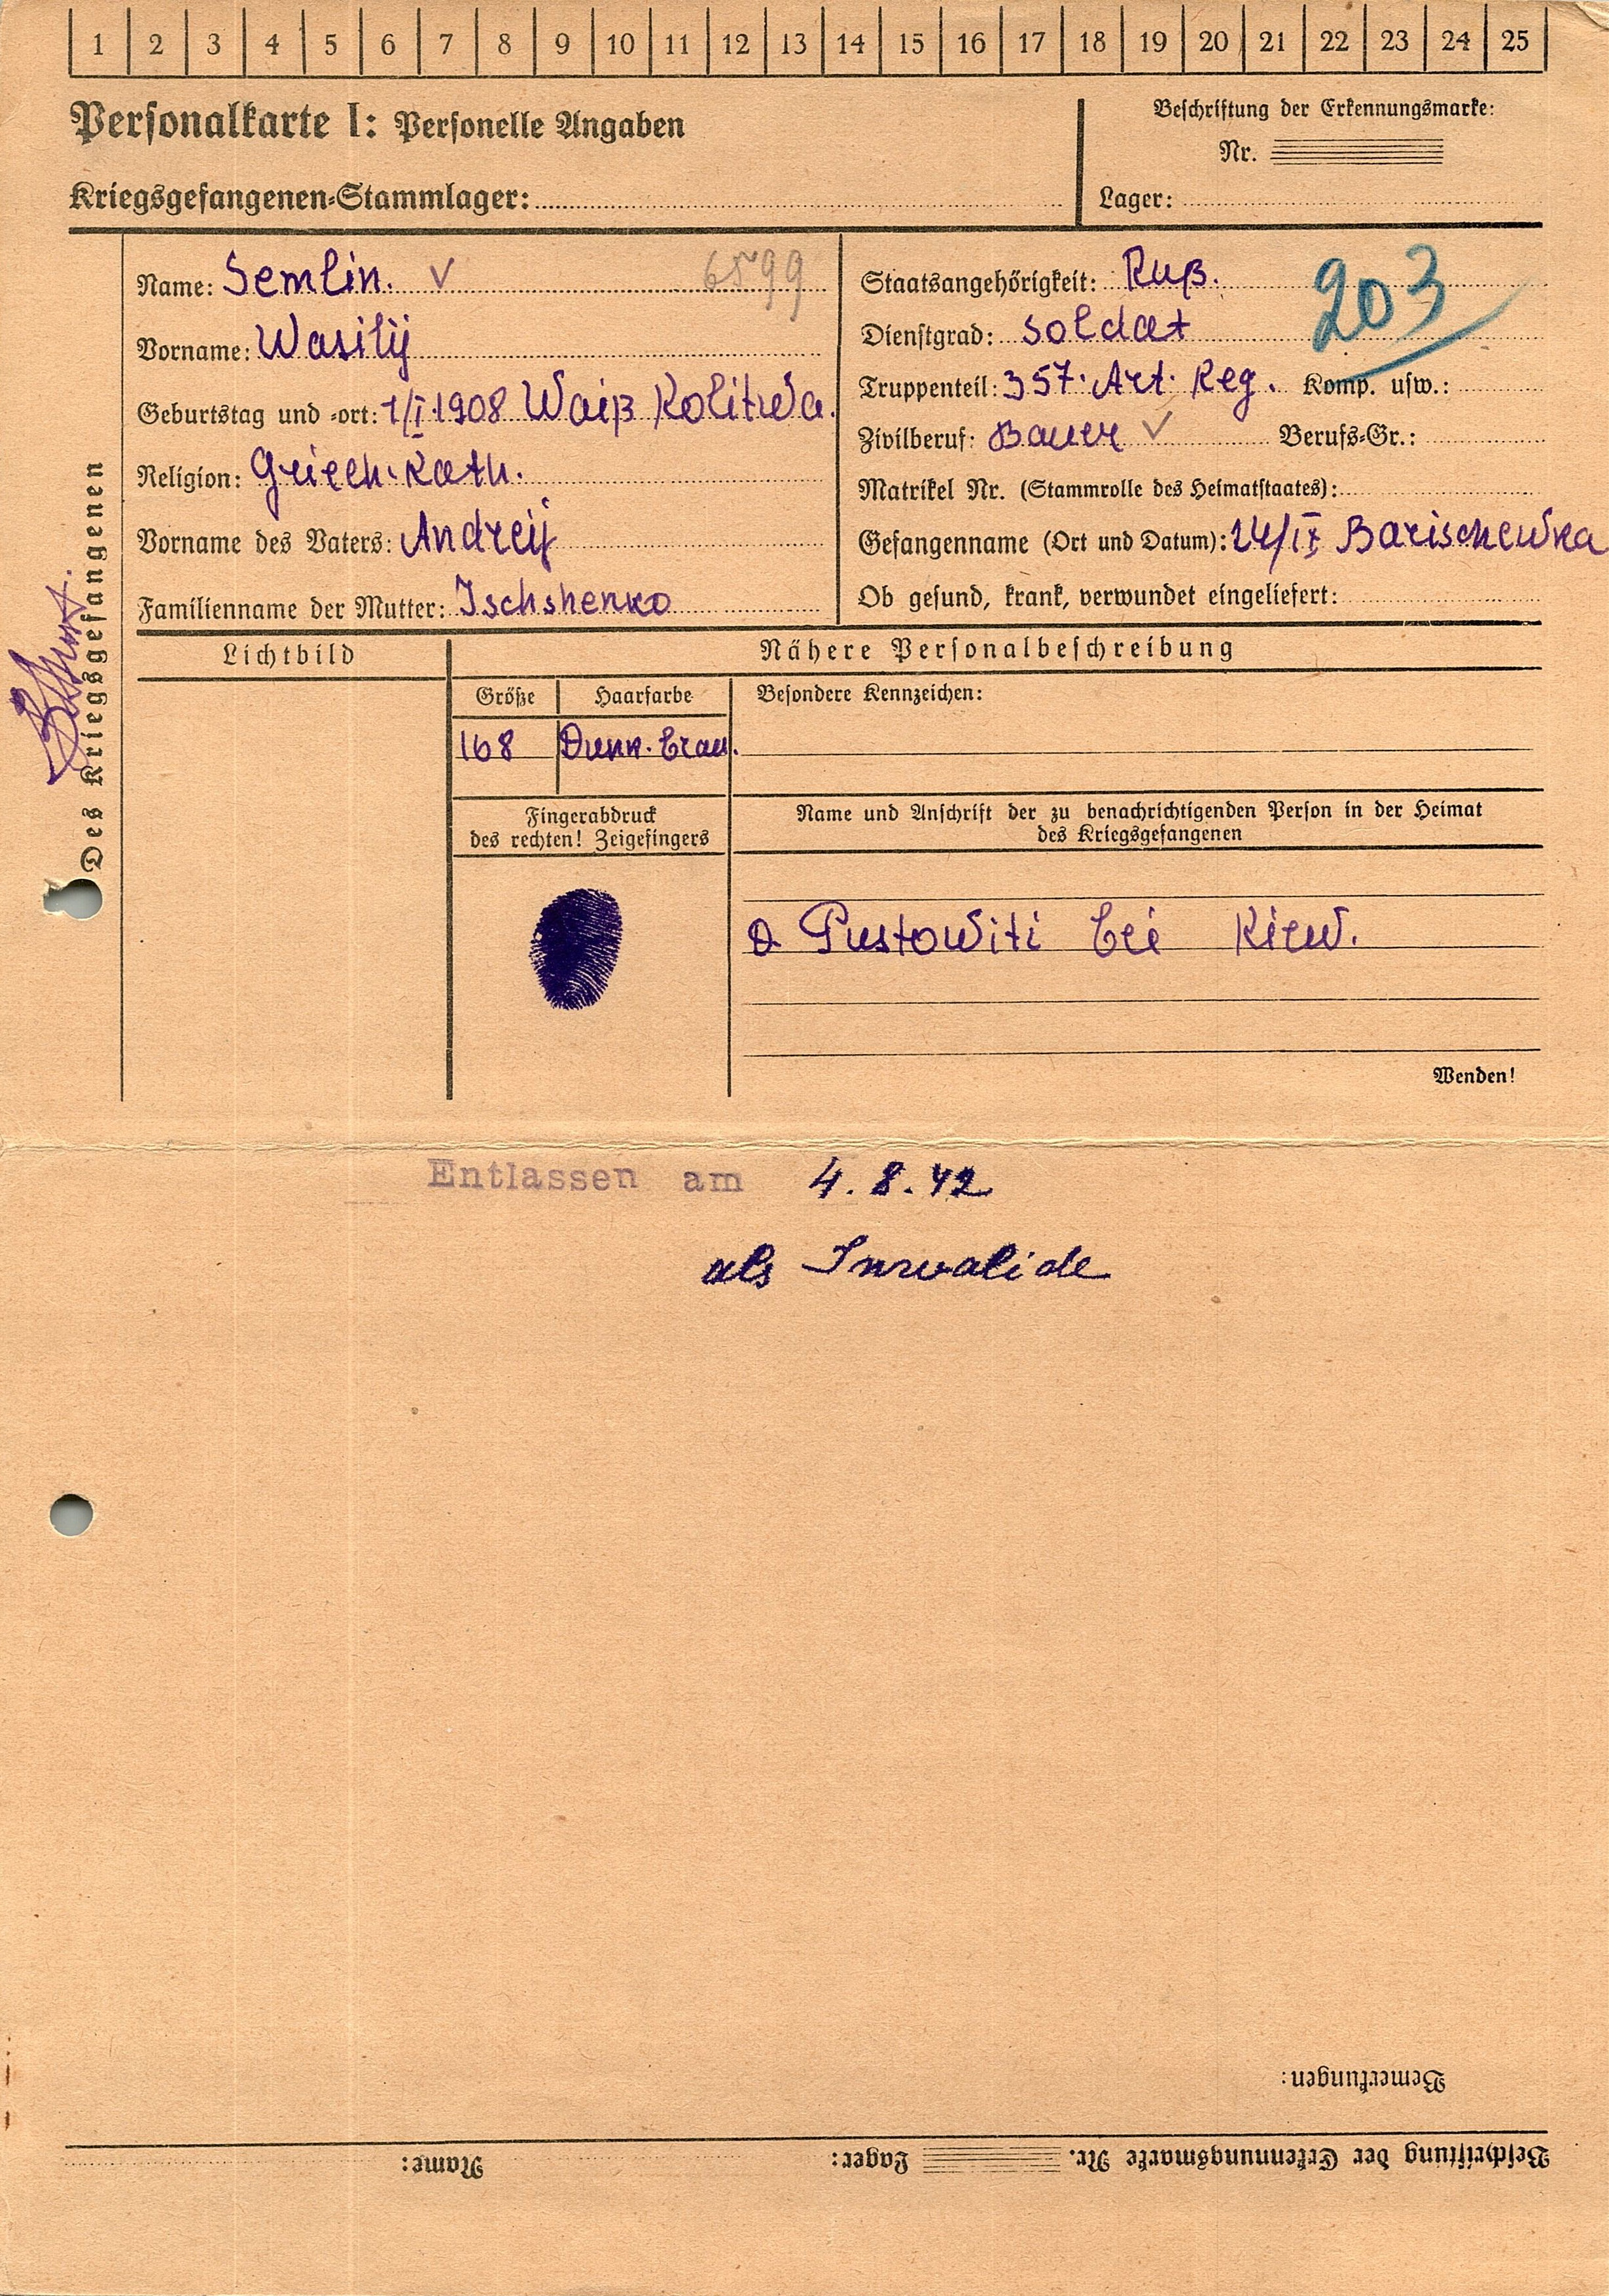 1 2 3 4 5 6 7 8 9 10 11 12 13 14 15 16 17 18 19 20 21 22 23 24 25
Personalkarte I: Personelle Angaben
Beschriftung der Erkennungsmarke:
Nr.
Kriegsgefangenen-Stammlager:
Lager:
Des Kriegsgefangenen
Name: Semlin. 6599
Vorname: Wasilij
Geburtstag und -ort: 1/I.1908 Waiß Kolitwa.
Religion: Griech. Kath.
Vorname des Vaters: Andreij
Familienname der Mutter: Ischshenko
Staatsangehörigkeit: Ruß. 203
Dienstgrad: Soldat
Truppenteil: 357. Art. Reg. Komp. usw.:
Zivilberuf: Bauer Berufs-Gr.:
Matrikel Nr. (Stammrolle des Heimatstaates):
Gefangenname (Ort und Datum): 24/IX Barischewka
Ob gesund, krank, verwundet eingeliefert:
Lichtbild
Nähere Personalbeschreibung
Größe Haarfarbe Besondere Kennzeichen:
168 Dunk. brau.
Fingerabdruck
des rechten! Zeigefingers
Name und Anschrift der zu benachrichtigenden Person in der Heimat
des Kriegsgefangenen
D. Pustowiti bei Kiew.
Wenden!
Entlassen am 4.8.42
als Invalide
Bemerkungen:
Beschriftung der Erkennungsmarke Nr. Lager: Name: